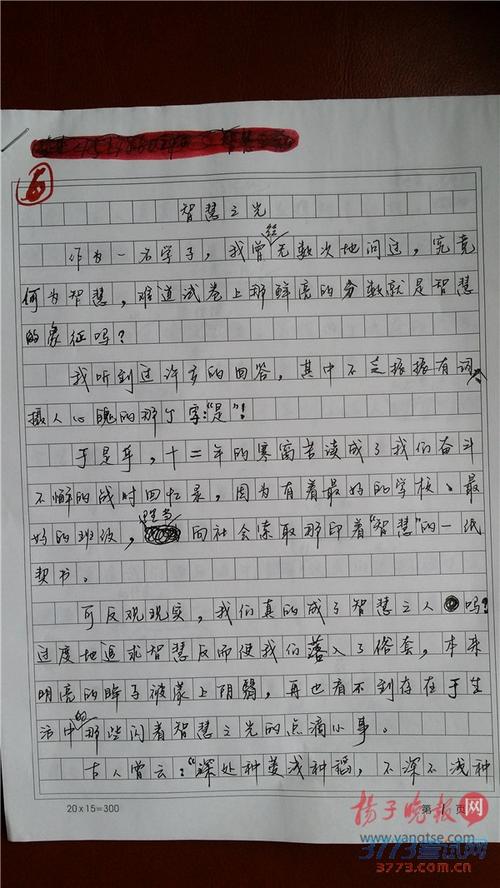 6
智慧之光
作为一名学子，我曾经无数次地问过，究竟
何为智慧，难道试卷上那鲜亮的分数就是智慧
的象征吗？
我听到过许多的回答，其中不乏振振有词、
摄人心魄的那个字：“是”！
于是乎，十二年的寒窗苦读成了我们奋斗
不懈的战时回忆录，因为有着最好的学校、最
好的班级，向社会索取那印着“智慧”的一纸
契书。
可反观现实，我们真的成了智慧之人吗？
过度地追求智慧反而使我们落入了俗套，本来
明亮的眸子被蒙上阴翳，再也看不到存在于生
活中的那些闪着智慧之光的点滴小事。
古人曾云：“深处种菱浅种稻，不深不浅种
20×15=300
第 1 页
扬子晚报网
www.yangtse.com
3773考试网
3773.com.cn